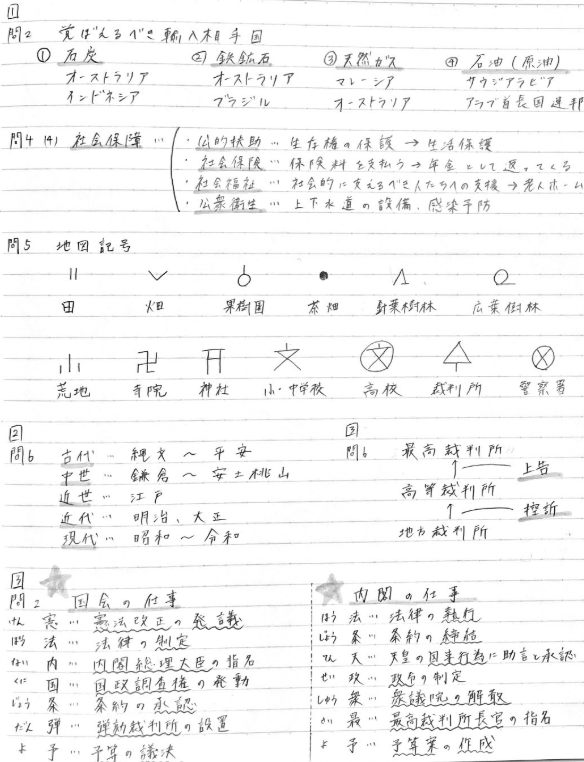 1
問2 覚ばえるべき輸入相手国
① 石炭 ② 鉄鉱石 ③ 天然ガス ④ 石油(原油)
オーストラリア オーストラリア マレーシア サウジアラビア
インドネシア ブラジル オーストラリア アラブ首長国連邦
問4 (4) 社会保障 …
・公的扶助 … 生存権の保護 → 生活保護
・社会保険 … 保険料を支払う → 年金として返ってくる
・社会福祉 … 社会的に支えるべき人たちへの支援 → 老人ホーム
・公衆衛生 … 上下水道の設備、感染予防
問5 地図記号
田 畑 果樹園 茶畑 針葉樹林 広葉樹林
荒地 寺院 神社 小・中学校 高校 裁判所 警察署
2
問6 古代 … 縄文 ~ 平安
中世 … 鎌倉 ~ 安土桃山
近世 … 江戸
近代 … 明治、大正
現代 … 昭和 ~ 令和
3
問6 最高裁判所
↑ 上告
高等裁判所
↑ 控訴
地方裁判所
3
問2 国会の仕事
けん 憲 … 憲法改正の発議
ほう 法 … 法律の制定
ない 内 … 内閣総理大臣の指名
くに 国 … 国政調査権の発動
じょう 条 … 条約の承認
だん 弾 … 弾劾裁判所の設置
よ 予 … 予算の議決
内閣の仕事
ほう 法 … 法律の執行
じょう 条 … 条約の締結
てん 天 … 天皇の国事行為に助言と承認
せい 政 … 政令の制定
しゅう 衆 … 衆議院の解散
さい 最 … 最高裁判所長官の指名
よ 予 … 予算案の作成